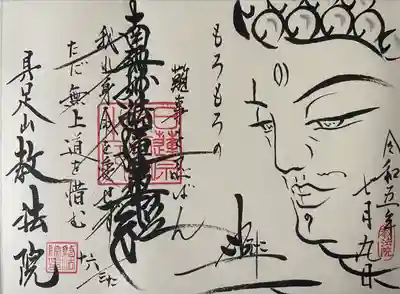 令和五年
七月九日
もろもろの
難事忍ばん
南無妙法蓮華経
我れ身命を愛せず
ただ無上道を惜む
具足山 教法院